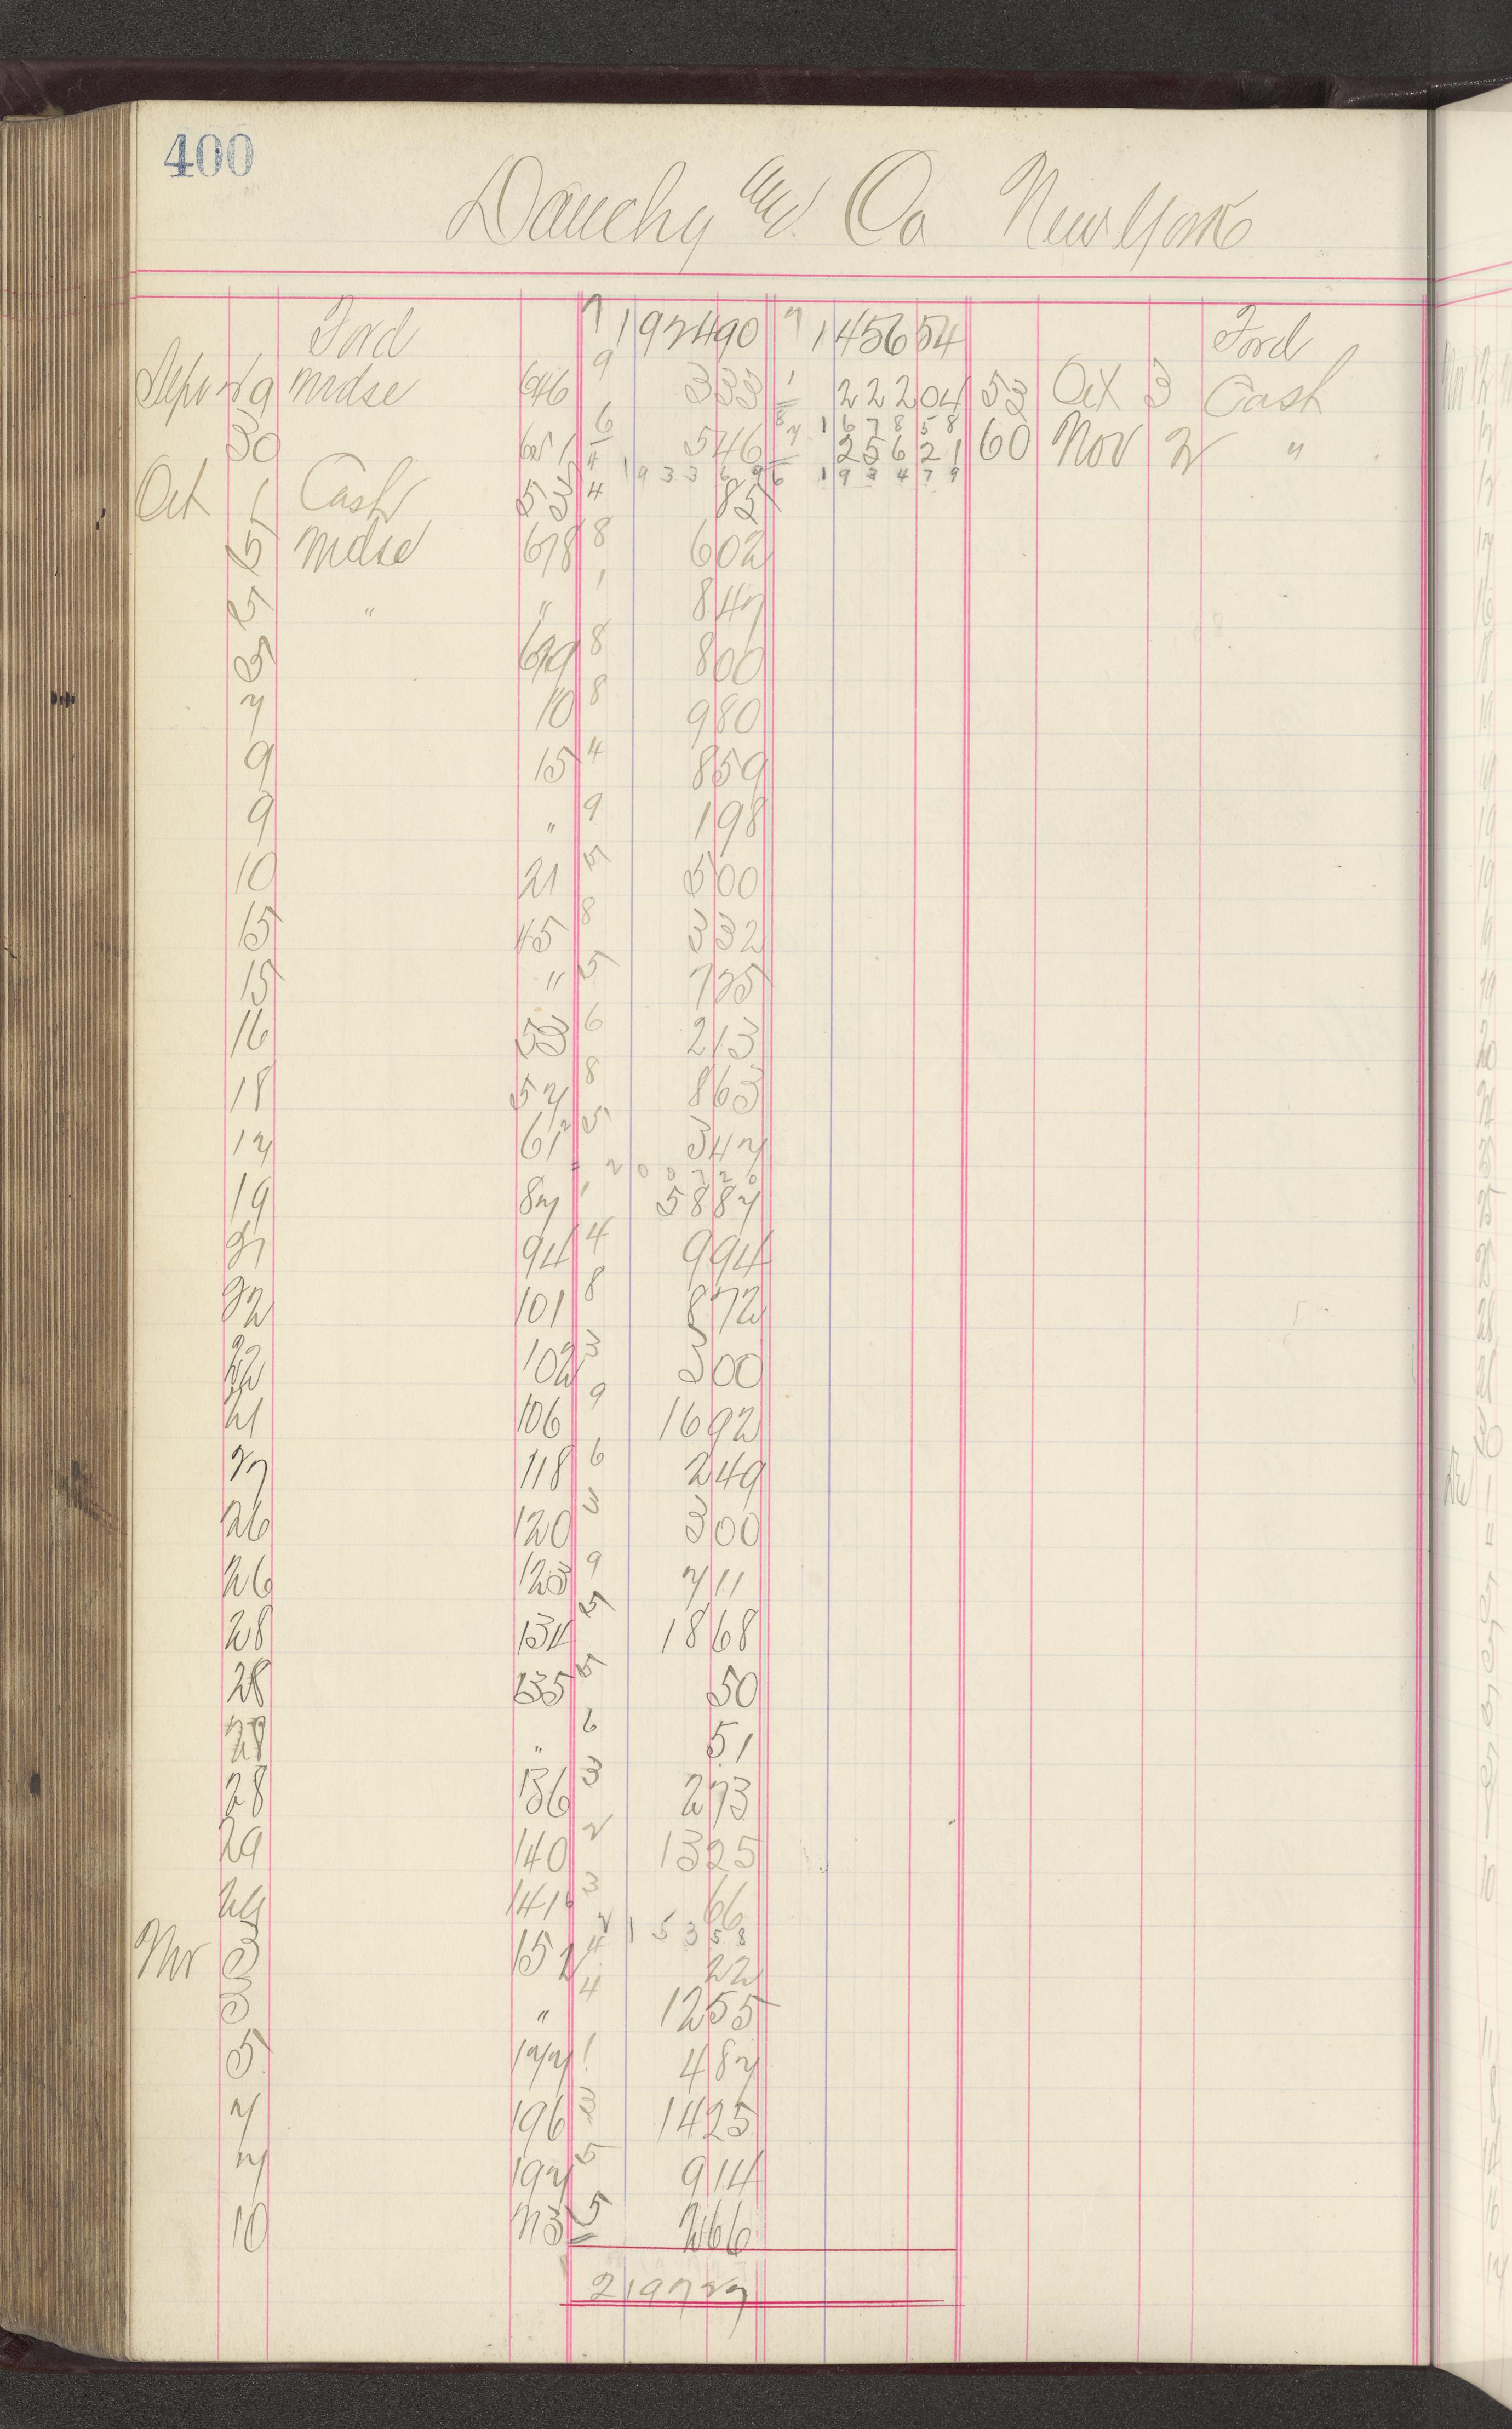 400
Dauchy and Co New York
Ford 7 192490 7 145654 Ford
Sept 29 Mdse 646 9 333 1 22204 53 Oct 3 Cash
8 167858
30 651 6 546 7 25621 60 Nov 2 "
4 193369 6 193479
Oct 1 Cash 53 4 85
5 Mdse 678 8 602
5 " " 1 847
3 699 8 800
7 10 8 980
9 15 4 859
9 " 9 198
10 21 5 500
15 45 8 332
15 " 5 725
16 53 6 213
18 57 8 863
17 61 5 347
200720
19 87 1 5887
21 94 4 994
22 101 8 872
22 102 3 300
106 9 1692
27 118 6 249
26 120 3 300
26 123 9 711
28 134 5 1868
28 135 5 50
28 " 6 51
28 136 3 273
29 140 2 1325
29 141 3 66
2 15358
Nov 3 152 4 22
3 " 4 1255
5 177 1 487
7 196 3 1425
7 197 5 914
10 213 5 266
219727